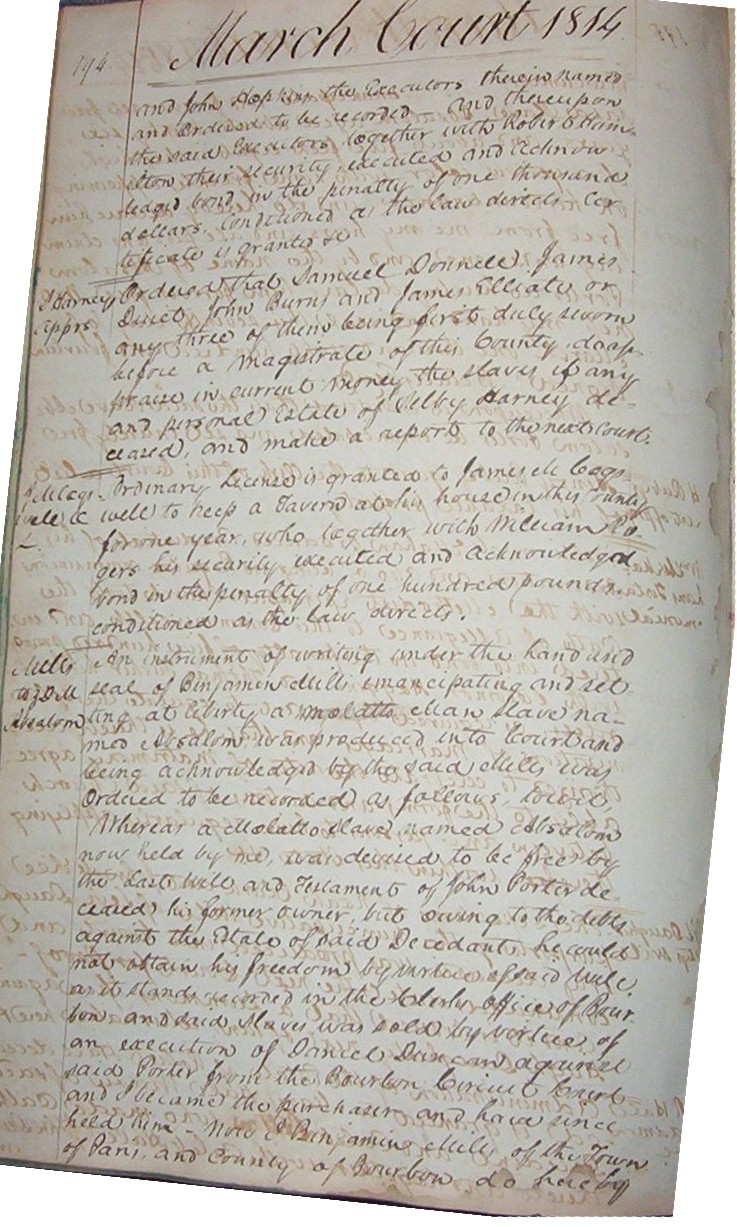 194
March Court 1814
and John Hopkins the Executors therein named
and Ordered to be recorded – and thereupon
the said Executors together with Robert Ham-
ilton their security executed and acknow
ledged bond in the penalty of one thousand
dollars, Conditioned as the law directs Cer
tificate is granted &c
S Harneys
apprs
Ordered that Samuel Donnell James
Duict, John Burns and James Elliate or
any three of them being first duly sworn
before a magistrate of this County, do ap-
praise in current money the slaves if any
and personal Estate of Selby Harney de-
ceased, and make a report to the next Court.
Ordinary License is granted to James McCogs
well to keep a Tavern at his house in this County
for one year, who together with William Ro
gers his security executed and acknowledged
bond in the penalty of one hundred pounds
conditioned as the law directs.
Mills
to D M
Absalom
An instrument of writing under the hand and
seal of Benjamin Mills emancipating and set
ting at liberty a molatto man slave na-
med Absalom was produced into Court and
being acknowledged by the said Mills was
Ordered to be recorded as follows, towit,
Whereas a Molatto slave named Absalom
now held by me, was devised to be free by
the Last Will and Testament of John Porter de-
ceased his former owner, but owing to the debts
against the Estate of said Decedant, he could
not obtain his freedom by virtue of said Will
as it stands recorded in the Clerks office of Bour
bon and said slave was sold by virtue of
an execution of Daniel Duncan against
said Porter from the Bourbon Circuit Court
and I became the purchaser and have since
held him – Now I Benjamin Mills of the Town
of Paris and County of Bourbon do hereby